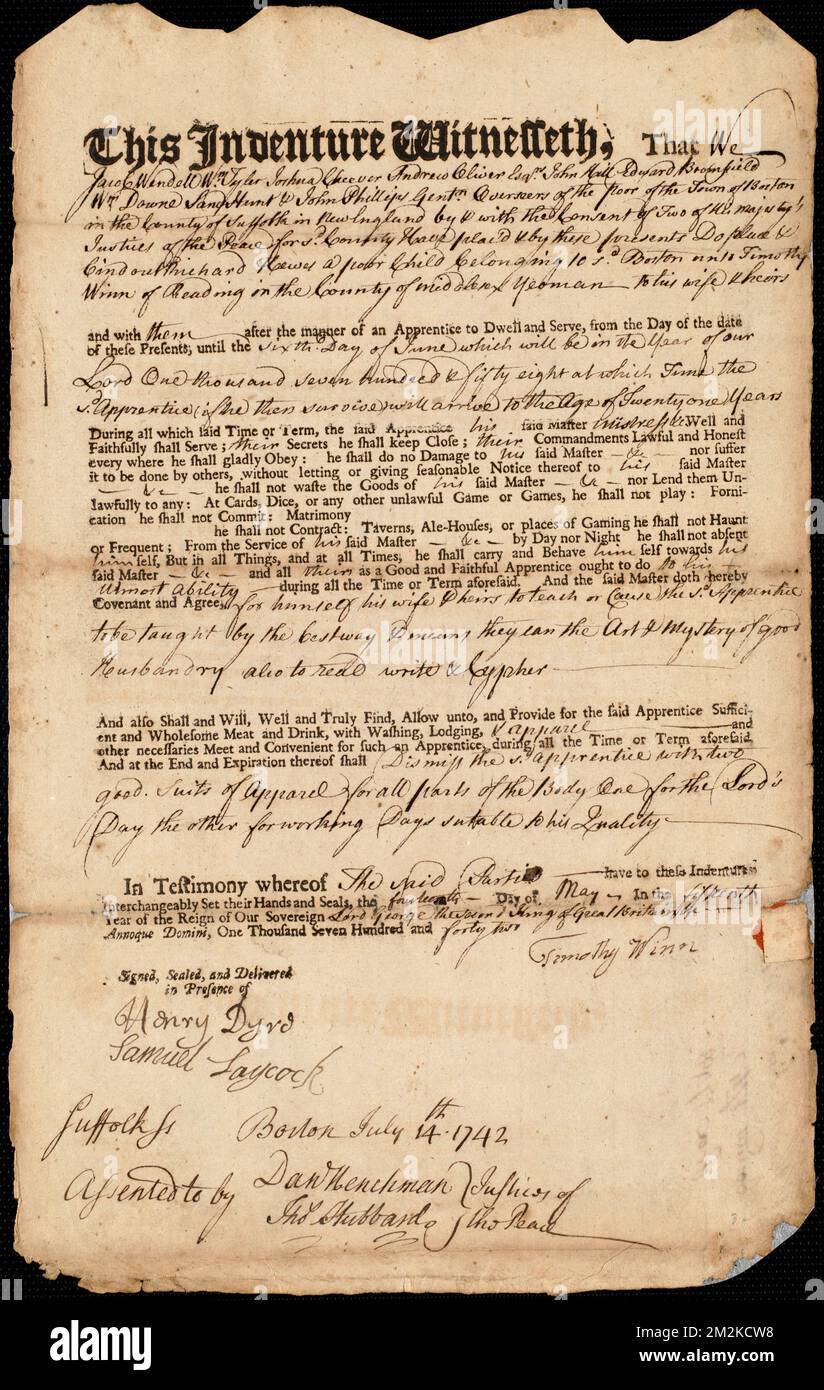 This Indenture Witnesseth, That We
Jacob Wendell Wm Tyler Joshua Cheever Andrew Oliver Esqrs John Hill Edward Bromfield
Wm Downe Saml Hunt & John Phillips Gentn Overseers of the Poor of the Town of Boston
in the County of Suffolk in New England by & with the Consent of Two of His Majesty's
Justices of the Peace for sd County Have plac'd & by these presents Do place &
bind out Richard Hewes a poor Child belonging to sd Boston unto Timothy
Winn of Reading in the County of Middlesex Yeoman to his wife & heirs
and with them after the manner of an Apprentice to Dwell and Serve, from the Day of the date
of these Presents, until the sixth Day of June which will be in the Year of our
Lord One thousand seven hundred & fifty eight at which Time the
sd Apprentice (if he then survive) will arrive to the Age of Twenty one Years
During all which said Time or Term, the said Apprentice his said Master & mistress Well and
Faithfully shall Serve; their Secrets he shall keep Close; their Commandments Lawful and Honest
every where he shall gladly Obey: he shall do no Damage to his said Master &c nor suffer
it to be done by others, without letting or giving seasonable Notice thereof to his said Master
&c he shall not waste the Goods of his said Master &c nor Lend them Un-
lawfully to any: At Cards, Dice, or any other unlawful Game or Games, he shall not play: Forni-
cation he shall not Commit: Matrimony
he shall not Contract: Taverns, Ale-Houses, or places of Gaming he shall not Haunt
or Frequent; From the Service of his said Master &c by Day nor Night he shall not absent
himself, But in all Things, and at all Times, he shall carry and Behave himself towards his
said Master &c and all theirs as a Good and Faithful Apprentice ought to do to his
Utmost ability during all the Time or Term aforesaid. And the said Master doth hereby
Covenant and Agree, for himself his wife & heirs to teach or Cause the sd Apprentice
to be taught by the best way & means they can the Art & Mystery of good
Husbandry also to read write & Cypher
And also Shall and Will, Well and Truly Find, Allow unto, and Provide for the said Apprentice Suffici-
ent and Wholesome Meat and Drink, with Washing, Lodging, & apparel and
other necessaries Meet and Convenient for such an Apprentice, during all the Time or Term aforesaid
And at the End and Expiration thereof shall Dismiss the sd apprentice with two
good Suits of Apparel for all parts of the Body One for the Lord's
Day the other for working Days sutable to his Quality
In Testimony whereof The said Parties have to these Indentures
Interchangeably Set their Hands and Seals, the fourteenth Day of May In the fifteenth
Year of the Reign of Our Sovereign Lord George the second King of Great Britain &c
Annoque Domini, One Thousand Seven Hundred and forty two
Timothy Winn
Signed, Sealed, and Delivered
in Presence of
Henry Dyre
Samuel Laycock
Suffolk Ss Boston July 14th 1742
Assented to by Danl Henchman Justices of
Tho Hubbard the Peace
alamy
Image ID: 2M2KCW8
www.alamy.com